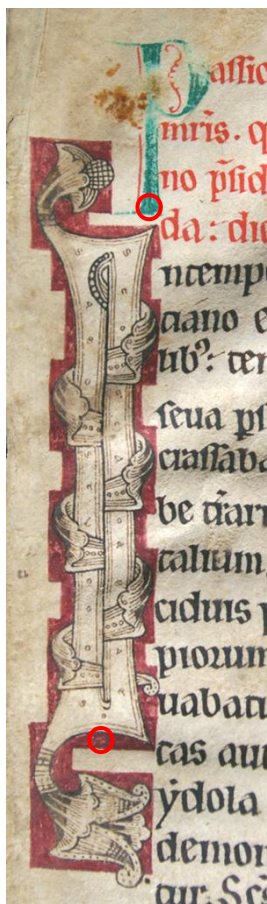 Passio
mr̄is. q
no p̄sid
da: die
Intemp
ciano e
ubꝰ: ter
seua ps
crassaba
be
talium
ciduis p
piorum
uabatu
tas aut
ẏdola
demon
tur. Sc̄s